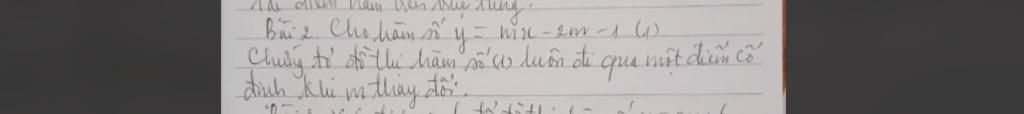 tại điểm nằm trên trục tung.
Bài 2. Cho hàm số y = mx - 2m - 1 (1)
Chứng tỏ đồ thị hàm số (1) luôn đi qua một điểm cố
định khi m thay đổi.